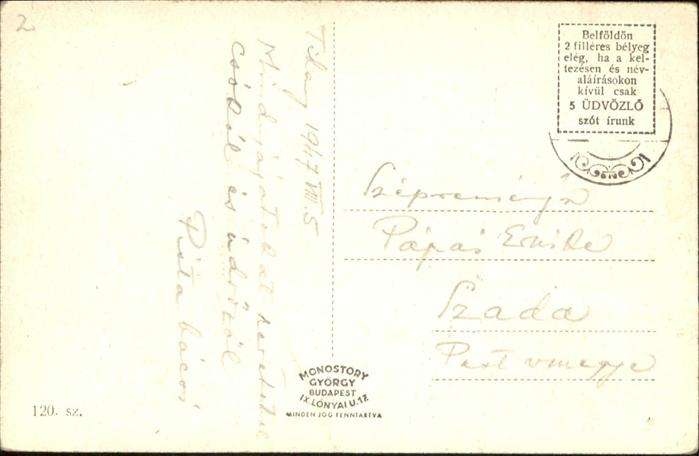 2
Belföldön
2 filléres bélyeg
elég, ha a kel-
tezésen és név-
aláírásokon
kívül csak
5 ÜDVÖZLŐ
szót írunk
Tihany 1947 VIII 5
Mindnyájatokat szeretettel
csókol és üdvözöl
Pista bácsi
Pápai Emike
Szada
Pest vmegye
MONOSTORY
GYÖRGY
BUDAPEST
IX. LÓNYAI U. 12
MINDEN JOG FENNTARTVA
120. sz.